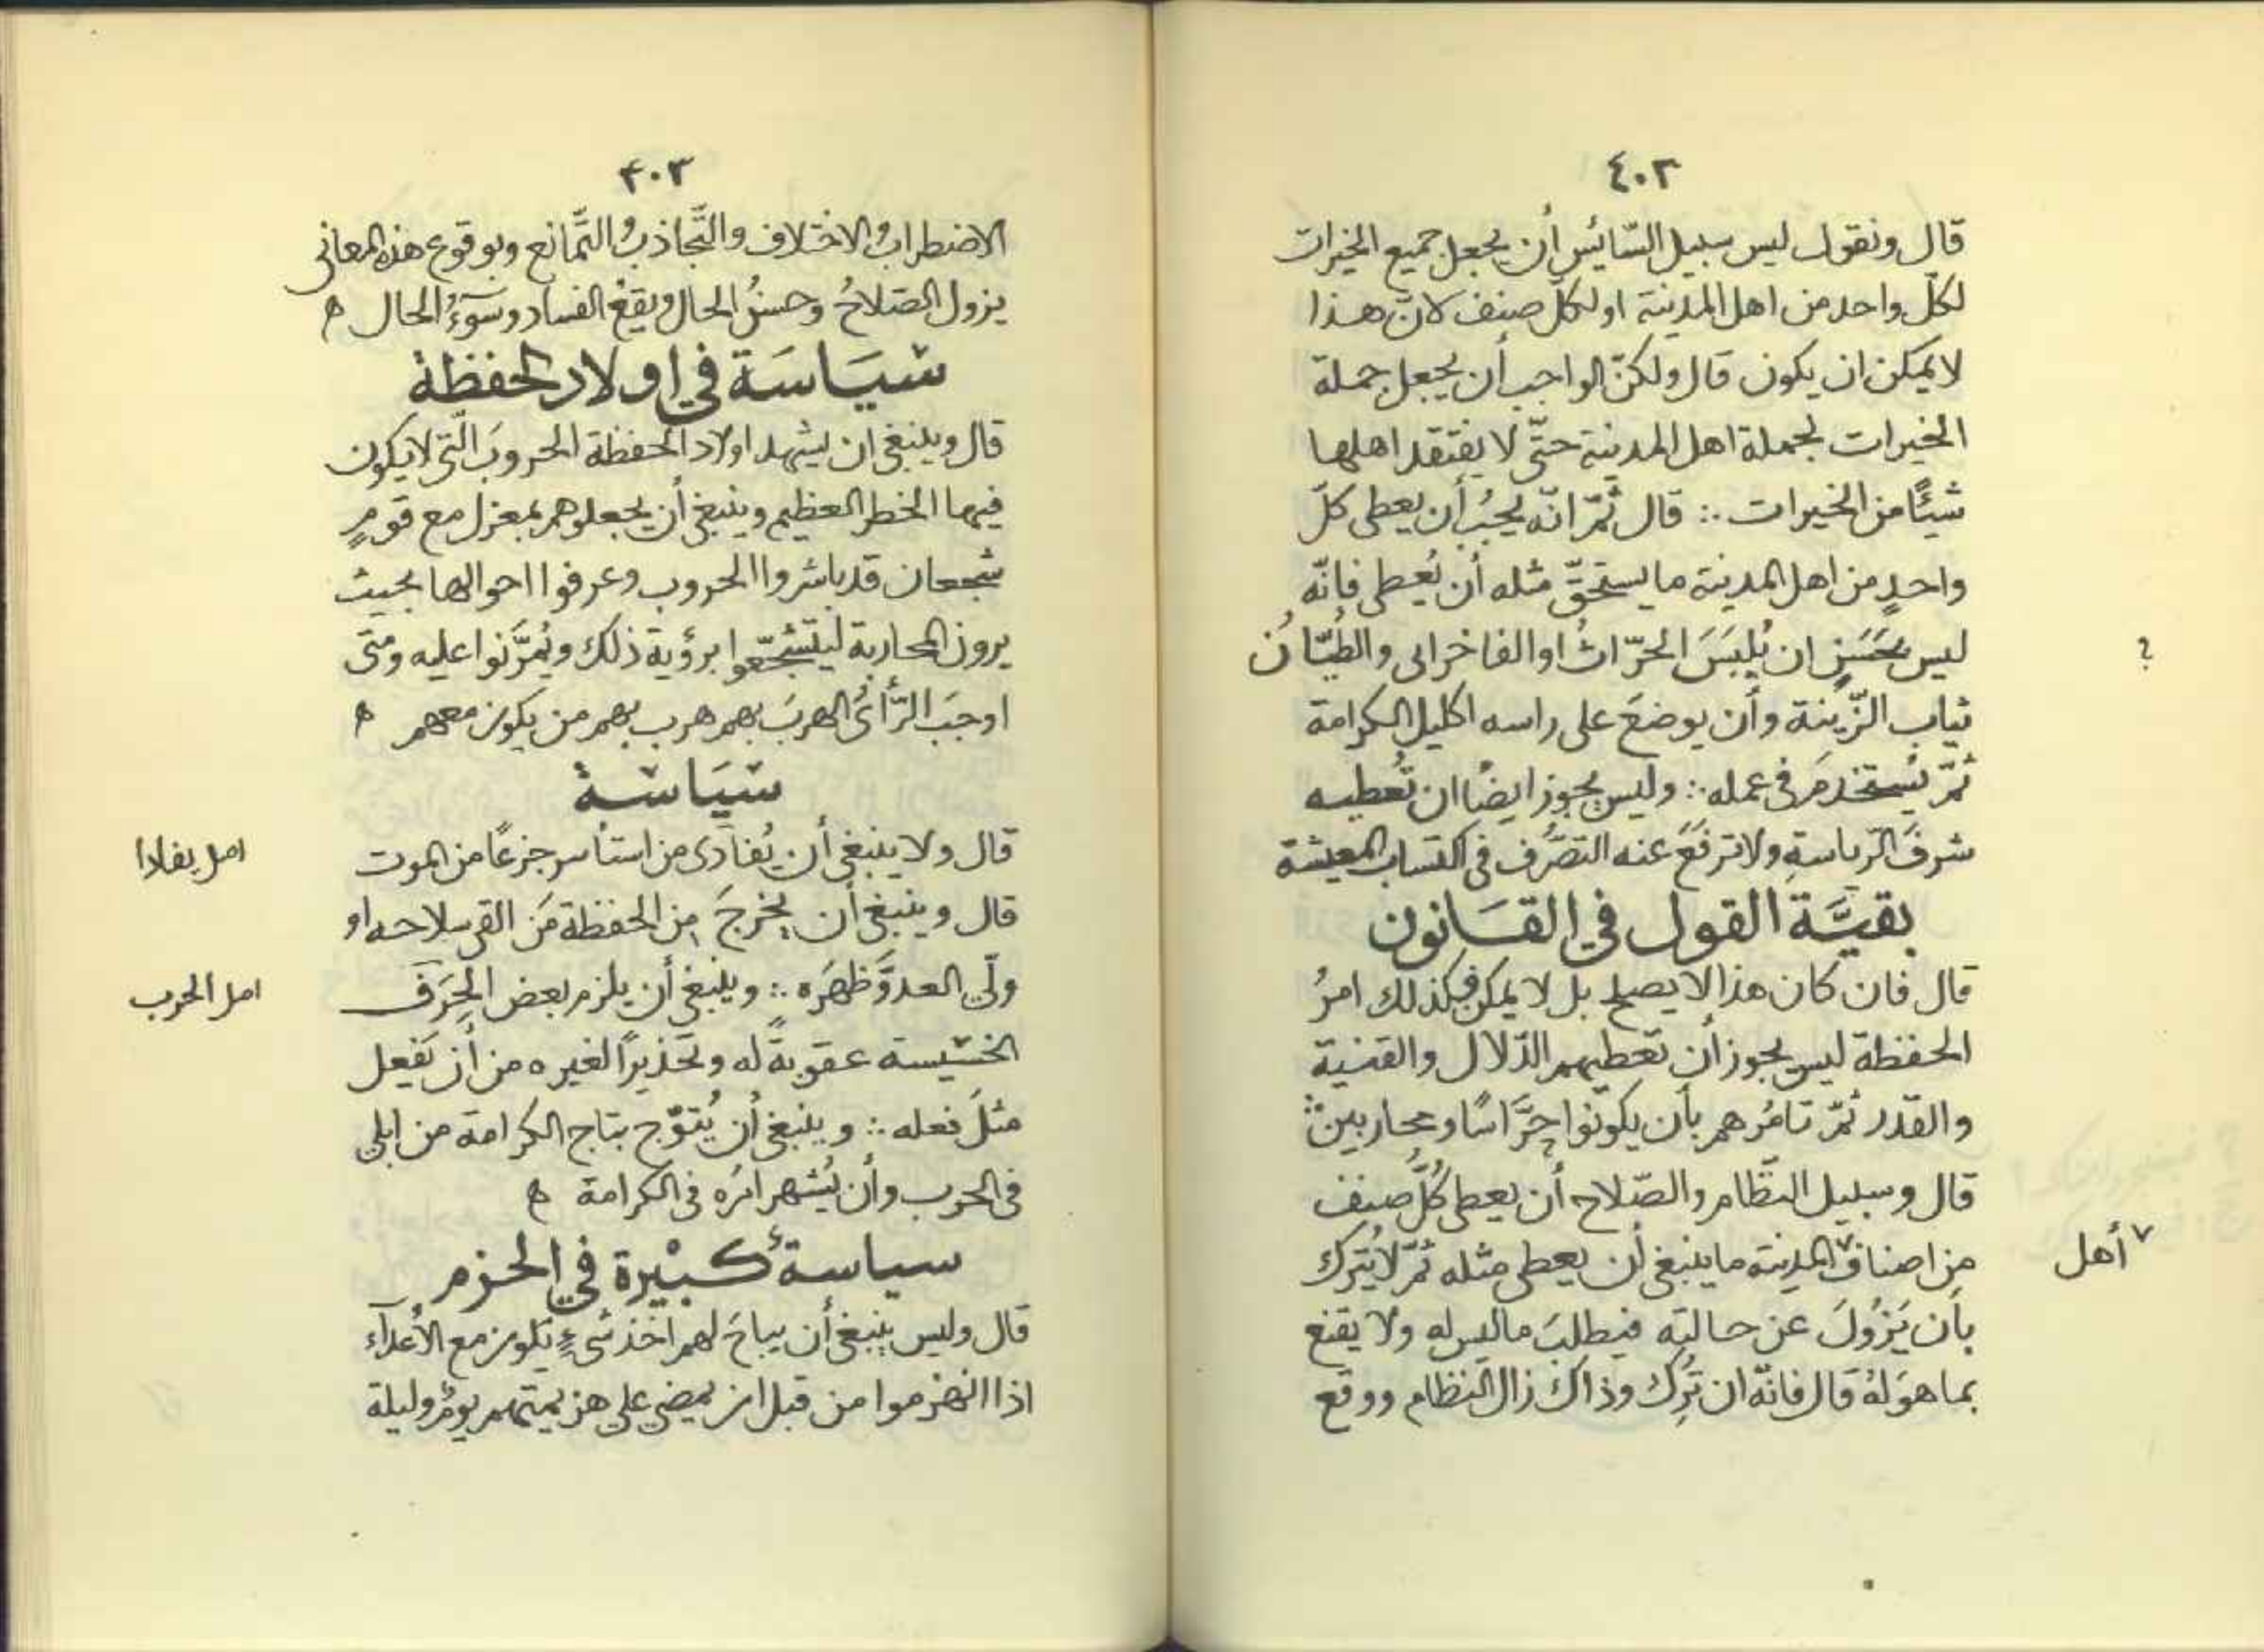 ٤٠٢
قال ونقول ليس سبيل السّائس أن يجعل جميع الخيرات
لكلّ واحد من اهل المدينة او لكلّ صنف لانّ هذا
لا يمكن ان يكون قال ولكنّ الواجب أن يجعل جملة
الخيرات لجملة اهل المدينة حتّى لا يفتقد اهلها
شيئًا من الخيرات ∴ قال ثمّ انّه يجبُ أن يعطى كلّ
واحدٍ من اهل المدينة ما يستحقّ مثله أن يُعطى فإنّه
ليس بحَسَنٍ ان يُلبَسَ الحرّاثُ او الفاخرانى والطيّانُ
؟
ثياب الزّينة وأن يوضعَ على راسه اكليل الكرامة
ثمّ يُستخدمَ فى عمله ∴ وليس يجوز ايضًا ان تُعطيه
شرفَ الرّياسةِ ولا ترفَعَ عنه التصرُّف فى اكتساب المعيشة
بقيَّة القول في القَانون
قال فان كان هذا لا يصلح بل لا يمكن فكذلك امرُ
الحفظة ليس يجوز أن تعطيهم الدّلال والقنية
والقدر ثمّ تامُرهم بأن يكونوا حرَّاسًا ومحاربين ∴
قال وسبيل النظّام والصّلاح أن يعطى كُلُّ صنف
مِن اصناف ٧ المدينة ما ينبغى أن يعطى مثله ثمّ لا يُترك
٧ أهل
بأن يَزُولَ عن حالته فيطلبَ ما ليس له ولا يقنع
بما هو لهُ قال فانّه ان تُرِك وذاك زال النظام ووقع
٤٠٣
الاضطرابُ والاختلاف والتَّجاذبُ والتَّمانع وبوقوع هذه المعانى
يزول الصّلاحُ وحسنُ الحال ويقعُ الفساد وسَوءُ الحال ه
سيَاسَة في اولاد الحفظة
قال وينبغى ان يشهد اولاد الحفظة الحروبَ الّتى لا يكون
فيها الخطر العظيم وينبغى أن يجعلوهم بمعزل مع قومٍ
شجعان قد باشروا الحروب وعرفوا احوالها بحيث
يرون المحاربة ليتشجّعوا برؤية ذلك ويُمرَّنوا عليه ومتى
اوجبَ الرَّأىُ الهربَ بهم هرب بهم من يكون معهم ه
سيَاسة
قال ولا ينبغى أن يُفادَى من استأسر جزعًا من الموت
امل يفادا
قال وينبغى أن يخرجَ مِن الحفظة مَن القى سلاحه او
ولّى العدوَّ ظهرَه ∴ وينبغى أن يلزم بعض الحِرَف
امل الحرب
الخسيسة عقوبةً له وتحذيرًا لغيره من أن يَفعل
مثلَ فعله ∴ وينبغى أن يُتوّج بتاج الكرامة من ابلى
فى الحرب وأن يُشهر امرُه فى الكرامة ه
سياسةٌ كبيْرة في الحزم
قال وليس ينبغى أن يباحَ لهم اخذ شىءٍ يكون مع الأعدآء
اذا انهزموا من قبل ان يمضى على هزيمتهم يومٌ وليلة